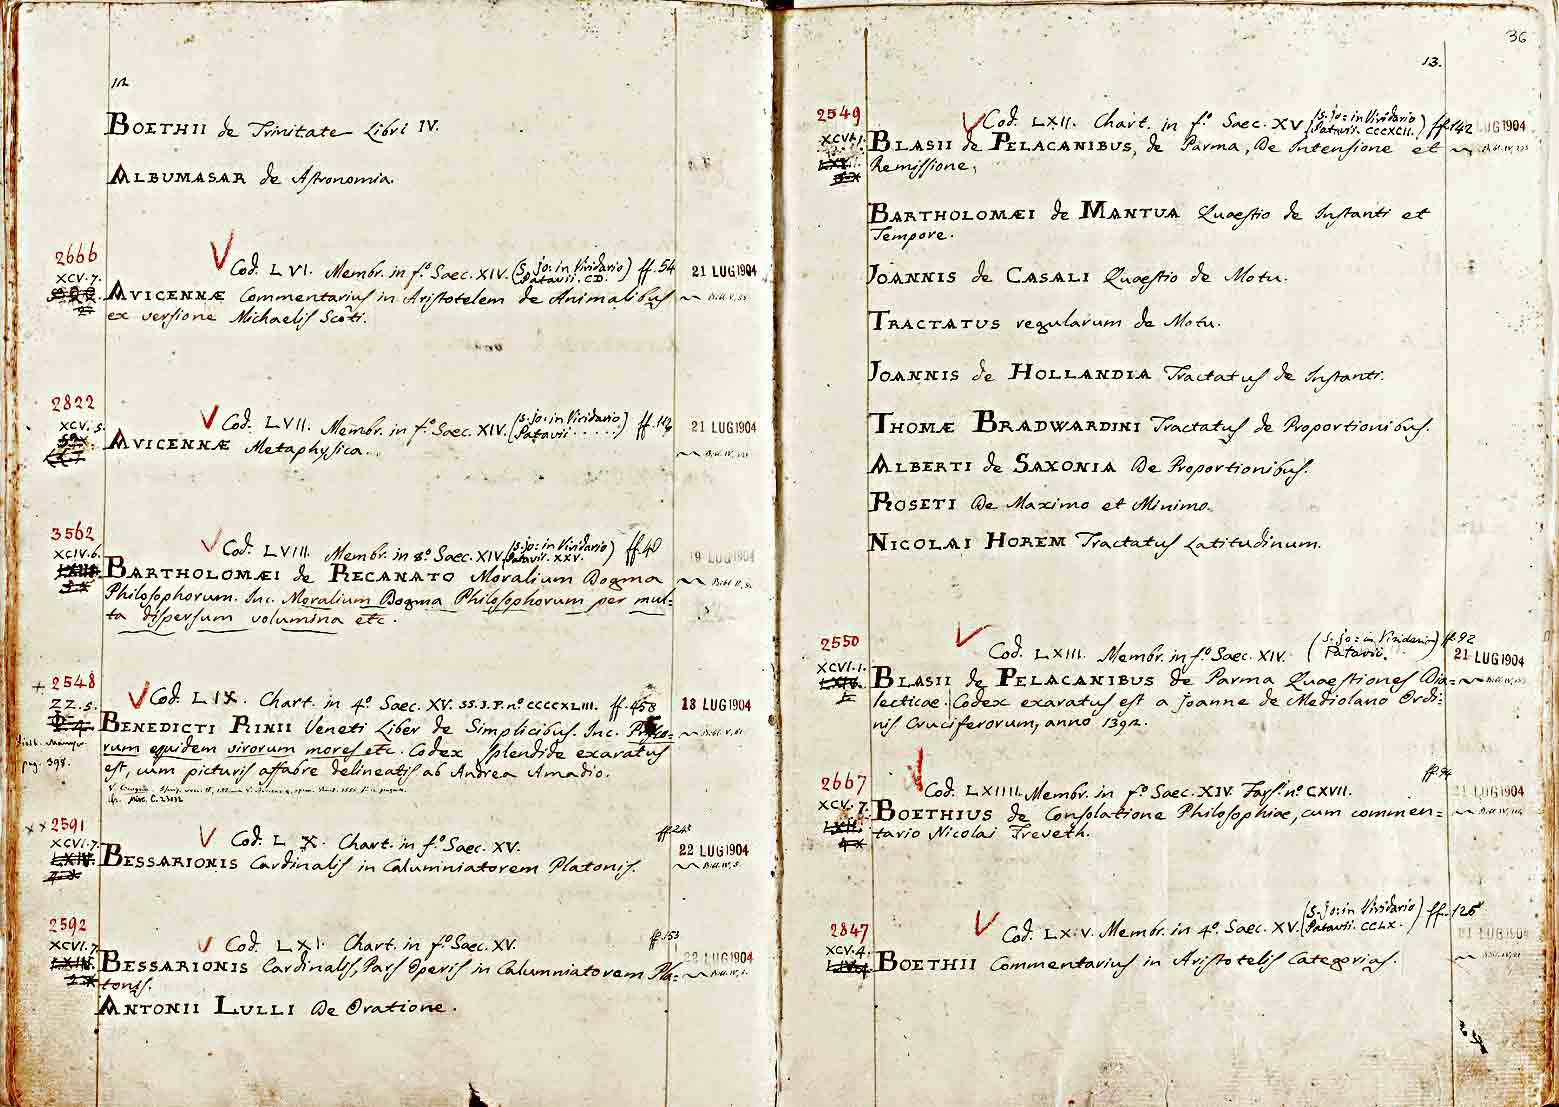 12
BOETHII de Trinitate Libri IV.
ALBUMASAR de Astronomia.
2666
XCV. 7.
Cod. LVI. Membr. in f.º Saec. XIV. (S. Jo: in Viridario Patavii. CD.) ff. 54
21 LUG 1904
AVICENNÆ Commentarius in Aristotelem de Animalibus
ex versione Michaelis Scoti.
2822
XCV. 5.
Cod. LVII. Membr. in f.º Saec. XIV. (S. Jo: in Viridario Patavii ......) ff.
21 LUG 1904
AVICENNÆ Metaphysica.
3562
XCIV. 6.
Cod. LVIII. Membr. in 8.º Saec. XIV. (S. Jo: in Viridario Patavii. XXV.) ff. 40
19 LUG 1904
BARTHOLOMÆI de RECANATO Moralium Dogma
Philosophorum. Inc. Moralium Dogma Philosophorum per mul=
ta dispersum volumina etc.
+ 2548
ZZ. 5.
Cod. LIX. Chart. in 4.º Saec. XV. SS. J. P. nº CCCCXLIII. ff. 458
18 LUG 1904
BENEDICTI RINII Veneti Liber de Simplicibus. Inc. Prisco=
rum equidem virorum mores etc. Codex splendide exaratus
est, cum picturis affabre delineatis ab Andrea Amadio.
pag. 398.
x x 2591
XCVI. 7.
Cod. LX. Chart. in f.º Saec. XV.
ff. 243
22 LUG 1904
BESSARIONIS Cardinalis in Calumniatorem Platonis.
2592
XCVI. 7.
Cod. LXI. Chart. in f.º Saec. XV.
ff. 153
22 LUG 1904
BESSARIONIS Cardinalis, Pars Operis in Calumniatorem Pla=
tonis.
ANTONII LULLI De Oratione.
36
13.
2549
XCVI. 1.
Cod. LXII. Chart. in f.º Saec. XV (S. Jo: in Viridario Patavii. CCCXCII.) ff. 142
LUG 1904
BLASII de PELACANIBUS, de Parma, De Intensione et
Remissione,
BARTHOLOMÆI de MANTUA Quaestio de Instanti et
Tempore.
JOANNIS de CASALI Quaestio de Motu.
TRACTATUS regularum de Motu.
JOANNIS de HOLLANDIA Tractatus de Instanti.
THOMÆ BRADWARDINI Tractatus de Proportionibus.
ALBERTI de SAXONIA De Proportionibus.
ROSETI De Maximo et Minimo.
NICOLAI HOREM Tractatus Latitudinum.
2550
XCVI. 1.
Cod. LXIII. Membr. in f.º Saec. XIV. (S. Jo: in Viridario Patavii.) ff. 92
21 LUG 1904
BLASII de PELACANIBUS de Parma Quaestiones Dia=
lecticae. Codex exaratus est a Joanne de Mediolano Ordi=
nis Cruciferorum, anno 1392.
2667
XCV. 7.
Cod. LXIIII. Membr. in f.º Saec. XIV. Fars. nº CXVII.
ff. 94
21 LUG 1904
BOETHIUS de Consolatione Philosophiae, cum commen=
tario Nicolai Treveth.
2847
XCV. 4.
Cod. LXV. Membr. in 4.º Saec. XV. (S. Jo: in Viridario Patavii. CCLX.) ff. 126
21 LUG 1904
BOETHII Commentarius in Aristotelis Categorias.